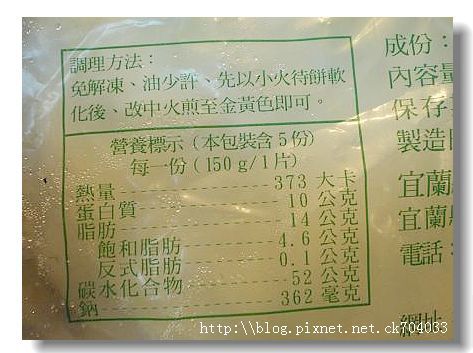 調理方法：
免解凍、油少許、先以小火待餅軟
化後、改中火煎至金黃色即可。
營養標示（本包裝含5份）
每一份（150g/1片）
熱量 373 大卡
蛋白質 10 公克
脂肪 14 公克
飽和脂肪 4.6 公克
反式脂肪 0.1 公克
碳水化合物 52 公克
鈉 362 毫克
成份：
內容量
保存
製造
宜蘭
宜蘭
電話：
網址
http://blog.pixnet.net.ck704033